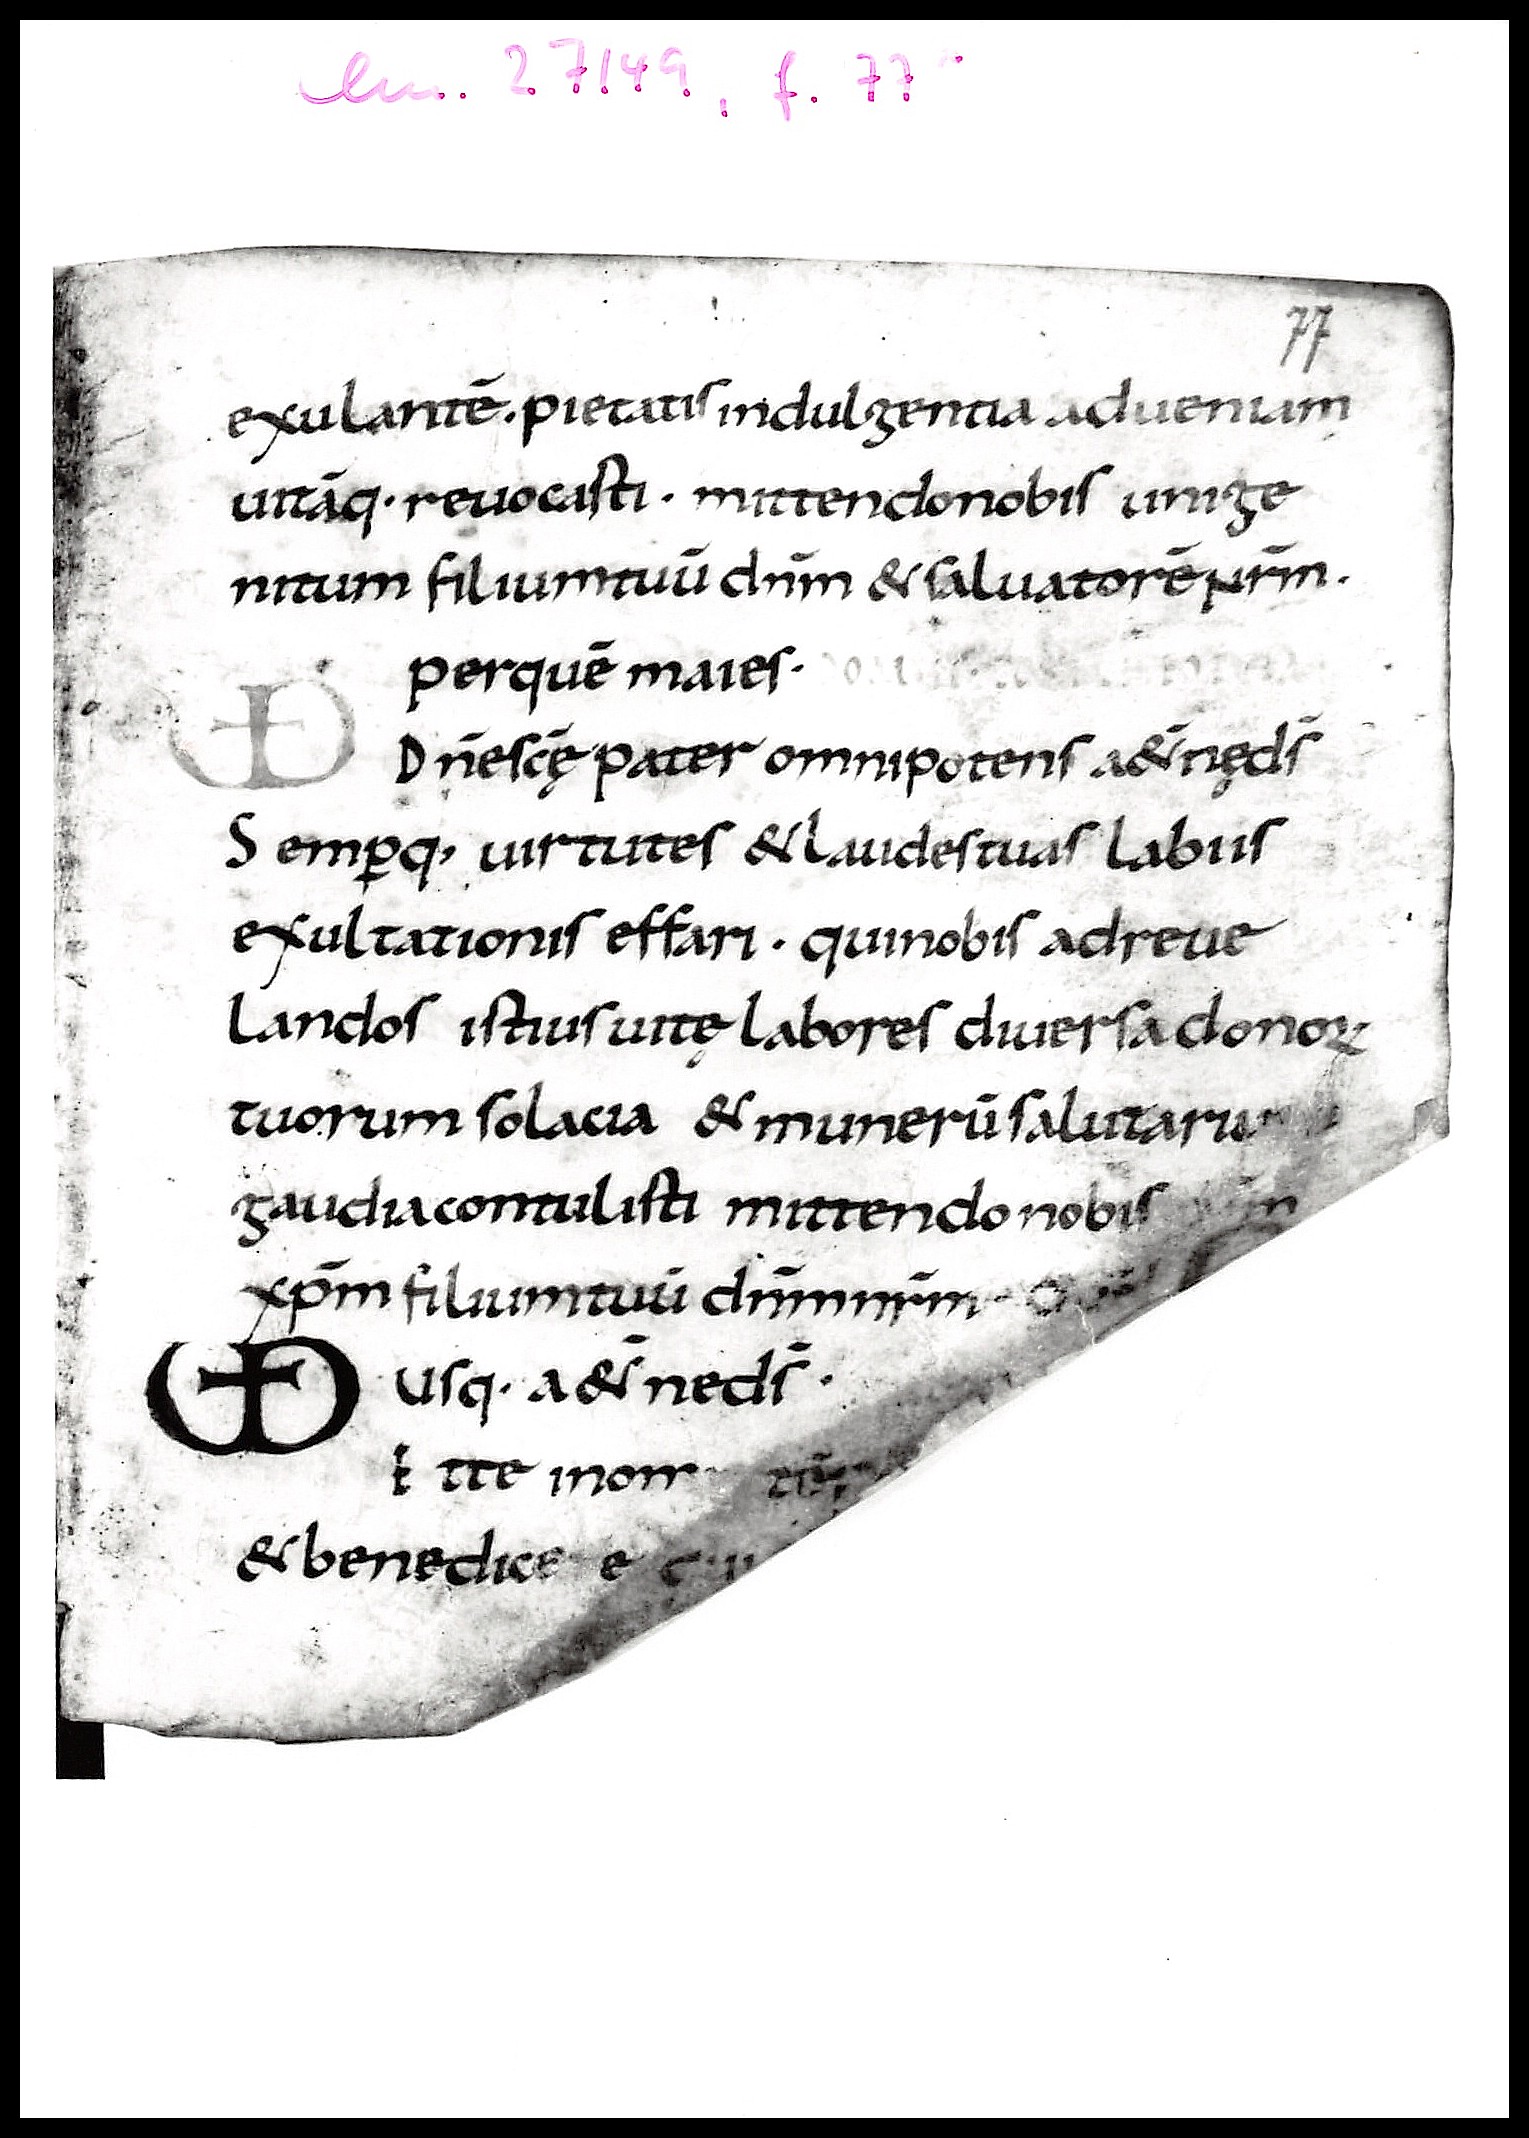 clm. 27149, f. 77
77
exulantē. pietatis indulgentia ad ueniam
uitāq· reuocasti· mittendo nobis unige
nitum filium tuū dn̄m & saluatorē nr̄m.
per quē maies·
Dn̄e sc̄ę pater omnipotens a&̄nę ds̄
Semꝑq· uirtutes & laudes tuas labiis
exultationis effari· qui nobis ad reue
landos istius uitę labores diuersa donoꝝ
tuorum solacia & munerū salutariu
gaudia contulisti mittendo nobis
xp̄m filium tuū dn̄m nr̄m·
usq· a&̄ne ds̄·
tte
& benedice